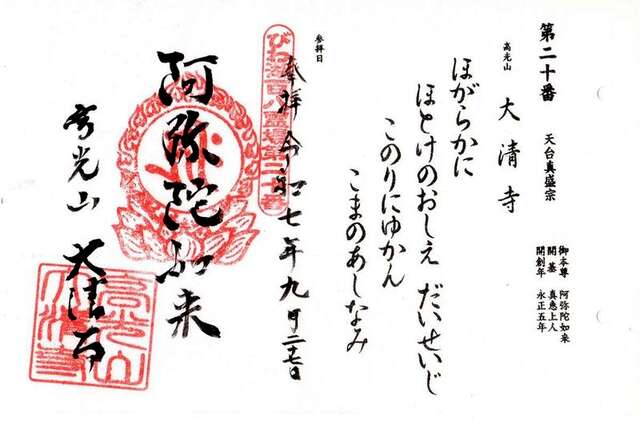 第二十番 天台真盛宗
御本尊 阿弥陀如来
開基 真恵上人
開創年 永正五年
高光山 大清寺
ほがらかに
ほとけのおしえ だいせいじ
このりにゆかん
こまのあしなみ
参拝日
奉拝 令和七年九月二十七日
びわ湖百八霊場第二十番
阿弥陀如来
高光山 大清寺